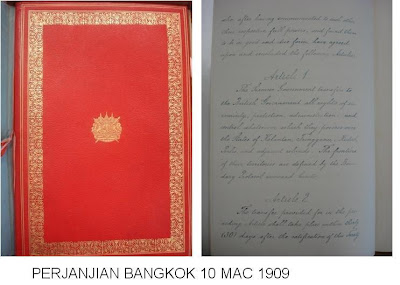 also after having communicated to each other
their respective full powers, and found them
to be in good and due form have agreed
upon and concluded the following Articles:
Article 1.
The Siamese Government transfers to
the British Government all rights of su-
zerainty, protection, administration and
control whatsoever which they possess over
the States of Kelantan, Tringganu, Kedah,
Perlis and adjacent islands. The frontiers
of these territories are defined by the Boun-
dary Protocol annexed hereto.
Article 2.
The transfer provided for in the pre-
ceding Article shall take place within thirty
(30) days after the ratification of this Treaty
PERJANJIAN BANGKOK 10 MAC 1909